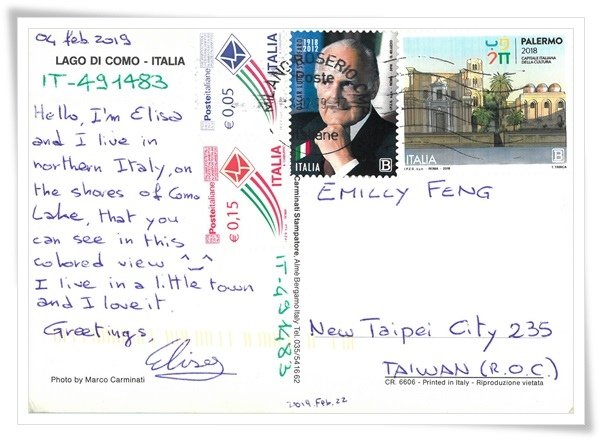 04 feb 2019
LAGO DI COMO - ITALIA
IT-491483
Hello, I'm Elisa
and I live in
northern Italy, on
the shores of Como
Lake, that you
can see in this
colored view ^_^
I live in a little town
and I love it.
Greetings,
Elisa
Photo by Marco Carminati
Posteitaliane
€ 0,05
ITALIA
Posteitaliane
€ 0,15
ITALIA
IT-491483
Carminati Stampatore, Almè Bergamo Italy Tel. 035/541662
2019.Feb.22
1918
2012
ITALIA
B
MILANO ROSERIO
Poste
italiane
PALERMO
2018
CAPITALE ITALIANA
DELLA CULTURA
ITALIA
B
I.P.Z.S. S.p.A. - ROMA - 2018
EMILLY FENG
New Taipei City 235
TAIWAN (R.O.C.)
CR. 6606 - Printed in Italy - Riproduzione vietata